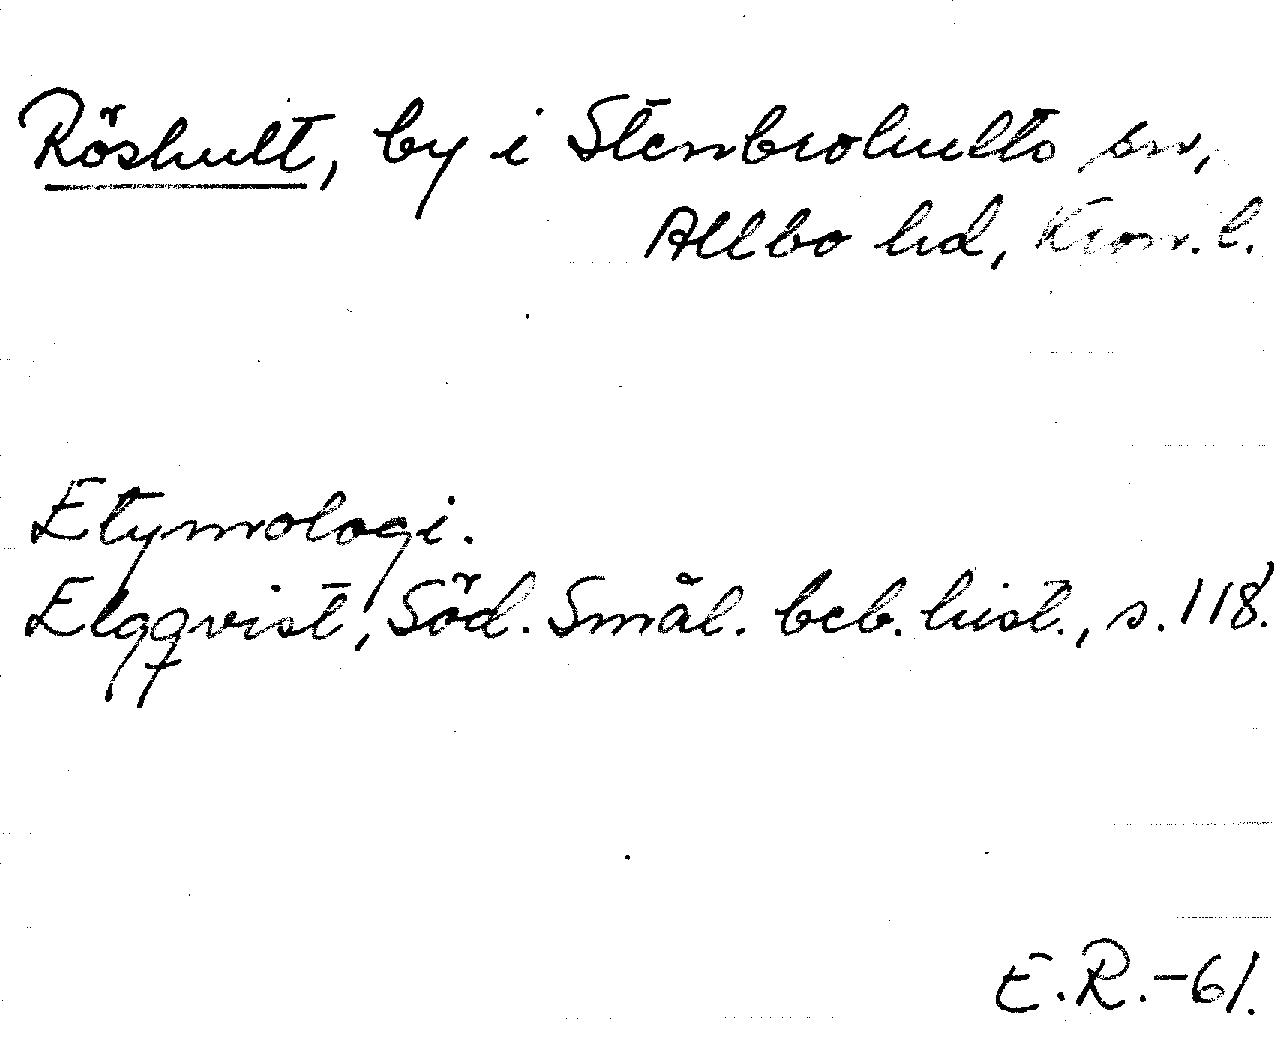 Röshult, by i Stenbrohults sn,
Allbo hd, Kron. l.
Etymologi.
Elgqvist, Söd. Smål. beb. hist., s. 118.
E. R. -61.